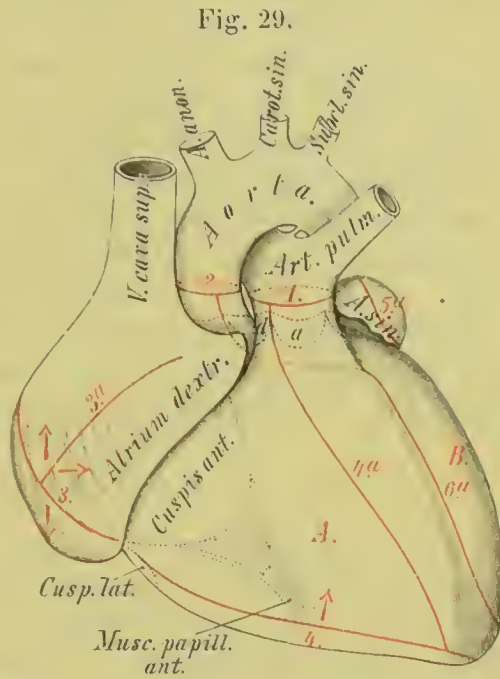 Fig. 29.
A. anon.
Carot. sin.
Subcl. sin.
V. cava sup.
Aorta.
Art. pulm.
2.
1.
5a
A. sin.
a
3a
Atrium dextr.
Cuspis ant.
3.
4a
B.
6a
A.
Cusp. lat.
Musc. papill.
ant.
4.